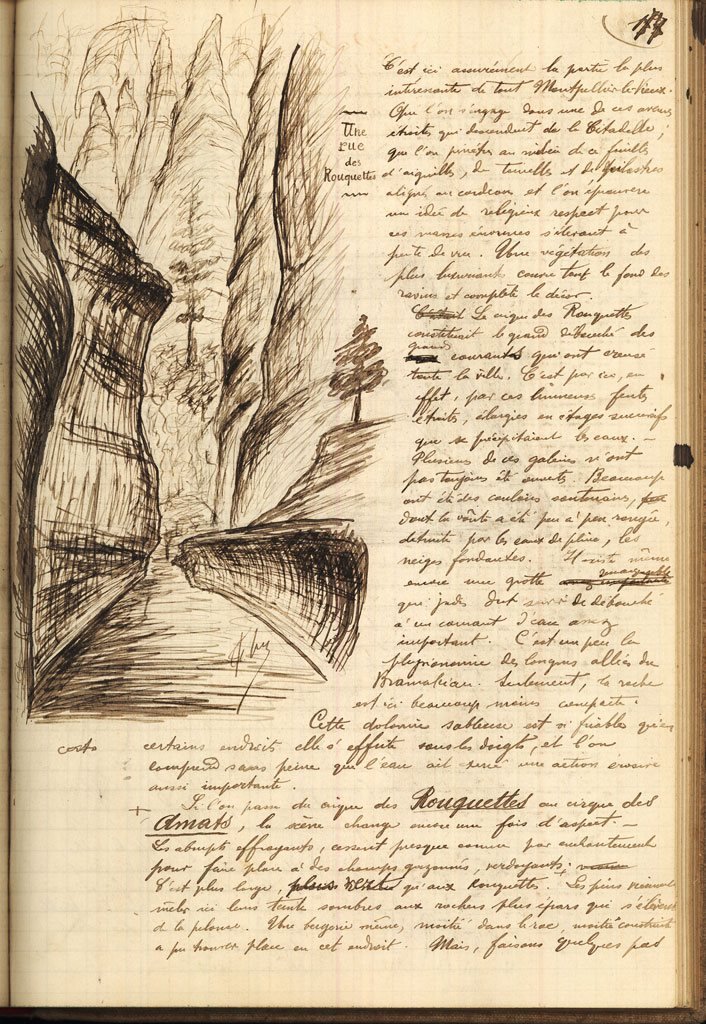 177
Une
rue
des
Rouquettes
C'est ici assurément la partie la plus
intéressante de tout Montpellier-le-Vieux.
Que l'on s'engage dans une de ces avenues
étroites qui descendent de la Citadelle,
que l'on pénètre au milieu de ce fouillis
d'aiguilles, de tourelles et de pilastres
alignés au cordeau, et l'on éprouvera
une idée de religieux respect pour
ces masses énormes s'élevant à
perte de vue. Une végétation des
plus luxuriantes couvre tout le fond des
ravins et complète le décor.
C'était Le cirque des Rouquettes
constituait le grand débouché des
grands courants qui ont creusé
toute la ville. C'est par ici, en
effet, par ces fentes
étroites, élargies en étages successifs
que se précipitaient les eaux. —
Plusieurs de ces galeries n'ont
pas toujours été ouvertes. Beaucoup
ont été des couloirs souterrains,
dont la voûte a été peu à peu rongée,
détruite par les eaux de pluie, les
neiges fondantes. Il existe même
encore une grotte remarquable
qui jadis dut servir de débouché
à un courant d'eau assez
important. C'est un peu la
physionomie des longues allées du
Bramabiau. Seulement, la roche
est ici beaucoup moins compacte.
Cette dolomie sableuse est si friable qu'en
certains endroits elle s'effrite sous les doigts, et l'on
comprend sans peine que l'eau ait exercé une action érosive
aussi importante.
+ Si l'on passe du cirque des Rouquettes au cirque des
Amats, la scène change encore une fois d'aspect. —
Les abrupts effrayants, cessent presque comme par enchantement
pour faire place à des champs gazonnés, verdoyants;
C'est plus large, plus vertes qu'aux Rouquettes. Les pins viennent
mêler ici leurs teintes sombres aux rochers plus épars qui s'élèvent
de la pelouse. Une bergerie même, moitié dans le roc, moitié construite
a pu trouver place en cet endroit. Mais, faisons quelques pas